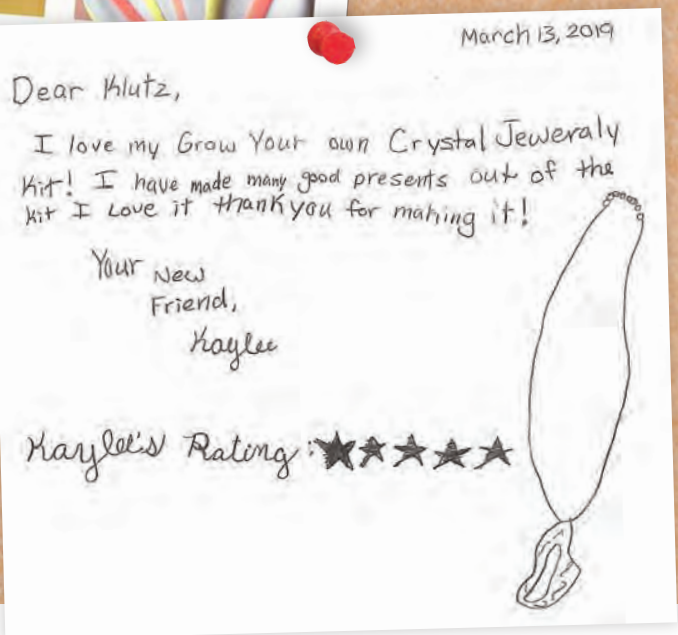 March 13, 2019
Dear Klutz,
I love my Grow Your own Crystal Jeweraly
Kit! I have made many good presents out of the
kit I Love it thank you for making it!
Your New
Friend,
Kaylee
Kaylee's Rating: ★★★★★